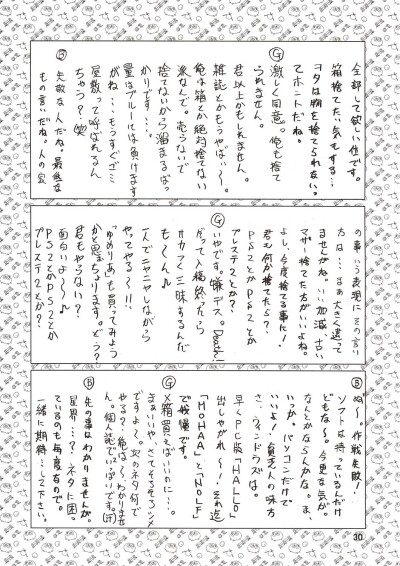 全部して欲しい位です。
箱捨てたい気もする…
ヲタは物を捨てられない。
てホントだね。
Ⓖ激しく同意。俺も捨て
られません。
君以上かもしれません。
雑誌とかもうやばい〜。
俺は箱とか絶対捨てない
派なんで。売らないで
捨てないから溜まるばっ
かりです…。
量はブルーには負けます
がね…もうすぐゴミ
屋敷って呼ばれるん
ちゃう?笑
Ⓑ失敬な人だな。最後な
もの言いだね。人の家
の事…う表現にその言い
方は…まぁ大きく違って
ませんがね。…加減、古い
マザー捨てた方がいいよね。
よし、今度捨てる事に!
君も何か捨てたら?
PS2とかPS2とか
プレステ2とか?
Ⓖいやです。嫌デス。Death!
だって入稿終ったら
サカつく三昧するんだ
も〜ん♪
一人でニヤニヤしながら
やってやる〜!!
「ゆめりあも買ってみよう
かと思っちょります。どう?
君もやらない?
面白いよ〜♪
PS2とかPS2とか
プレステ2とか?
Ⓑぬ〜。作戦失敗!
ソフトは持っているんだけ
どもな〜。今更な気が。
なんとかならんかな。ま、
いっか。パソコンだけで
いいよ!貧乏人の味方
さ、ウィンドウズは。
早くPC版「HALLO」
出しやがれ〜!それ迄
「HOHAA」と「HOLF」
で我慢です。
ⒼX箱買えばいいのに…。
まぁいいや。さてそろそろシメ
ですよ〜。次のネタ何で
やる?俺は〜わかりませ
ん。個人誌でいっぱいです。(汗)
Ⓑ先の事はわかりませんが。
星界…?ネタに困っ
ているのも毎度なので。
一緒に期待…して下さい。
30